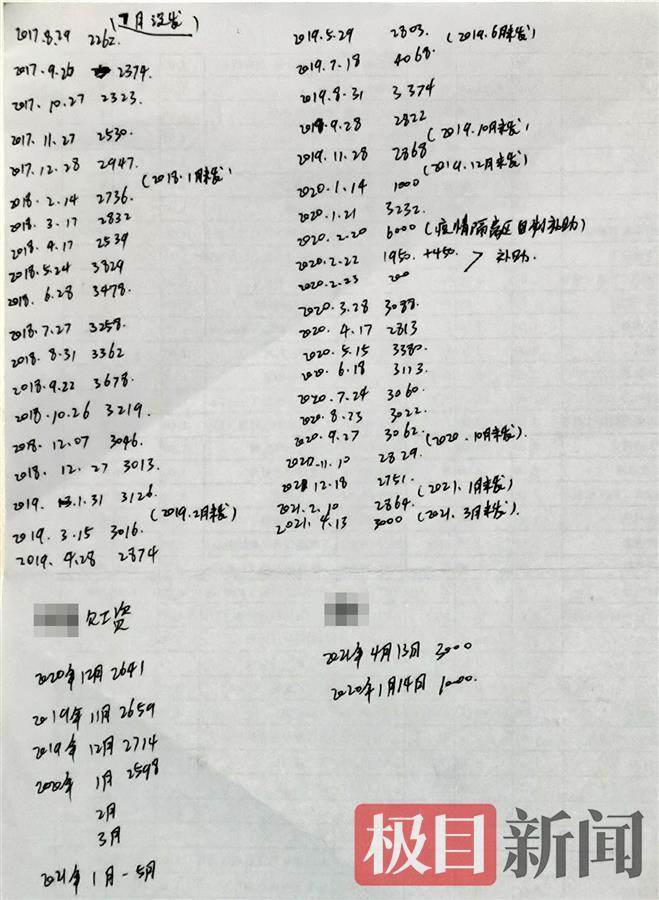 (7月没发)
2017.8.29 2262.
2017.9.26 2374.
2017.10.27 2323.
2017.11.27 2530.
2017.12.28 2947.
(2018.1月未发)
2018.2.14 2736.
2018.3.17 2832
2018.4.17 2539
2018.5.24 3829
2018.6.28 3478.
2018.7.27 3258.
2018.8.31 3362
2018.9.22 3678.
2018.10.26 3219.
2018.12.07 3046.
2018.12.27 3013.
2019.1.31 3126.
(2019.2月未发)
2019.3.15 3016.
2019.4.28 2874
2019.5.29 2803.
(2019.6月未发)
2019.7.18 4068.
2019.8.31 3374
2019.9.28 2822
(2019.10月未发)
2019.11.28 2868
(2019.12月未发)
2020.1.14 1000
2020.1.21 3232.
2020.2.20 6000 (疫情隔离区自制补助)
2020.2.22 1950.+450.
补助.
2020.2.23 200
2020.3.28 3088.
2020.4.17 2813
2020.5.15 3380.
2020.6.18 3113.
2020.7.24 3060.
2020.8.23 3022.
2020.9.27 3062.
(2020.10月未发).
2020.11.10 2829.
2020 12.18 2751.
(2021.1月未发)
2021.2.10 2864.
2021.4.13 3000 (2021.3月未发).
欠工资
2020年12月 2641
2019年11月 2659
2019年12月 2714
2020年 1月 2598
2月
3月
2021年1月-5月
2021年4月13日 3000
2020年1月14日 1000.
极目新闻